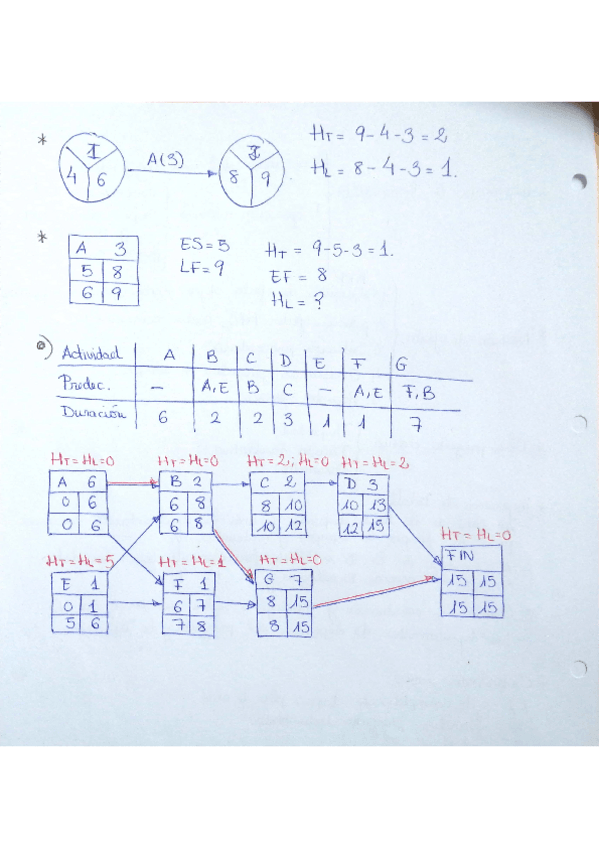 * I 4 6 A(3) J 8 9 HT = 9-4-3 = 2
HL = 8-4-3 = 1.
* A 3 ES = 5 HT = 9-5-3 = 1.
5 8 LF = 9 EF = 8
6 9 HL = ?
Actividad A B C D E F G
Predec. — A,E B C — A,E F,B
Duración 6 2 2 3 1 1 7
HT = HL = 0 HT = HL = 0 HT = 2; HL = 0 HT = HL = 2
A 6 B 2 C 2 D 3
0 6 6 8 8 10 10 13
0 6 6 8 10 12 12 15
HT = HL = 0
FIN
15 15
15 15
HT = HL = 5 HT = HL = 1 HT = HL = 0
E 1 F 1 G 7
0 1 6 7 8 15
5 6 7 8 8 15